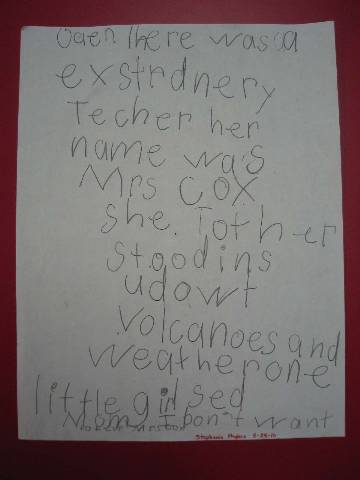 there was a
exstrdnery
Techer her
name was
Mrs Cox
she. Tot her
stoodins
udowt
volcanoes and
weather one
little girl sed
Mom I Don't want